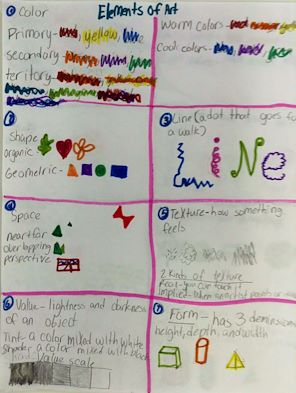 Elements of Art
① Color
Primary - red, yellow, blue
secondary
territory -
Warm colors - red
Cool colors -
②
Shape
organic -
Geometric -
③ Line (a dot that goes for
a walk)
LiNe
④
Space
near + far
overlapping
perspective
⑤ Texture - how something
feels
2 kinds of texture
Real - you can touch it
Implied - when an artist paints or
⑥ Value - lightness and darkness
of an object
Tint - a color mixed with white
Shade - a color mixed with black
Value scale
⑦ Form - has 3 demensions
height, depth, and width